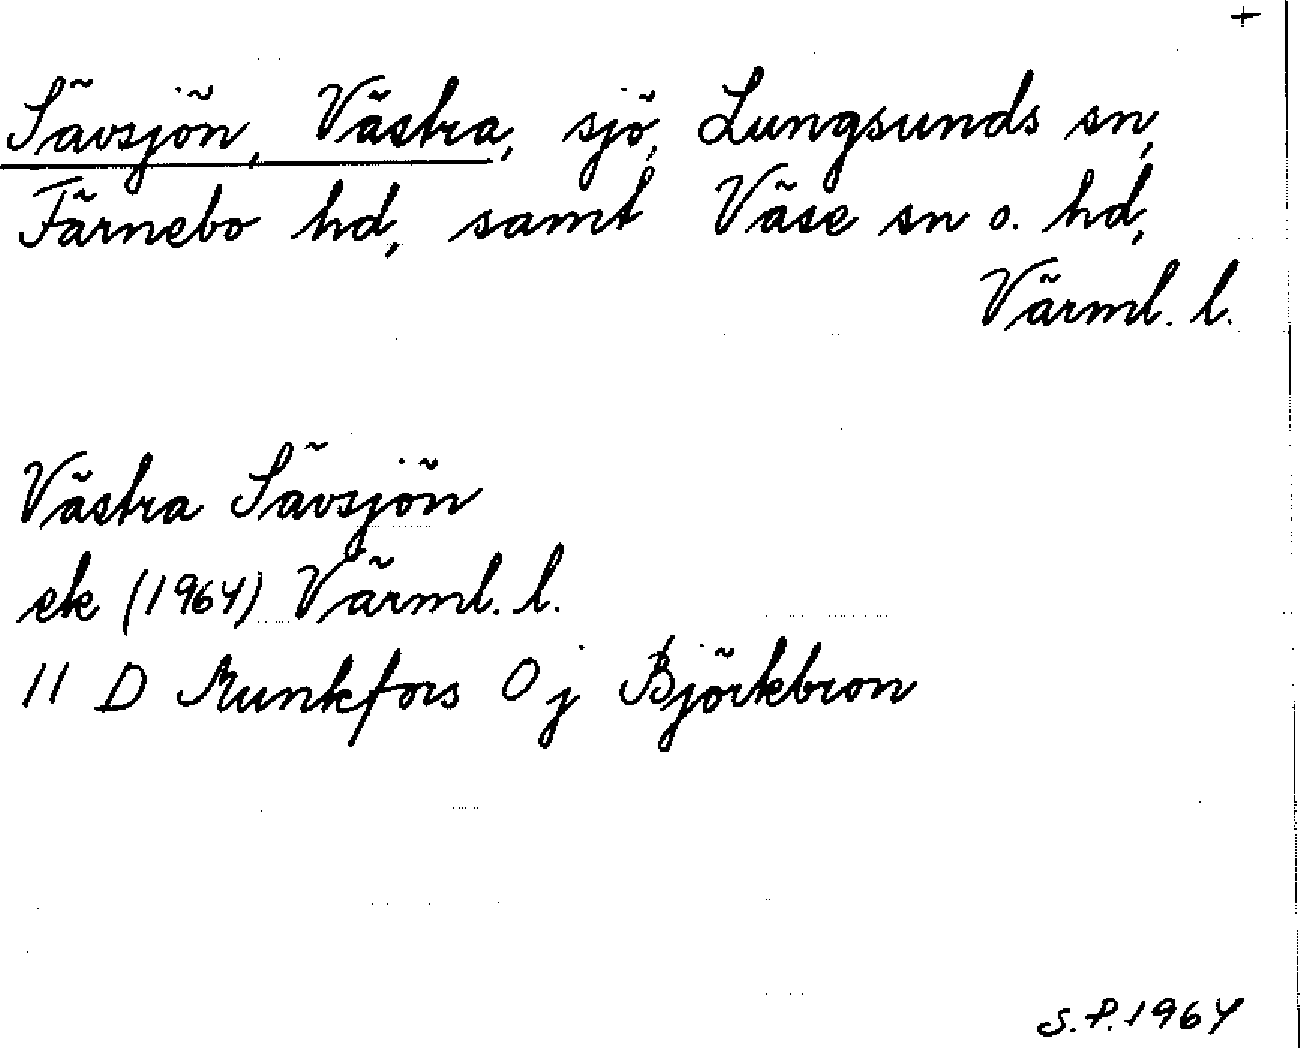 +
Sävsjön, Västra, sjö, Lungsunds sn,
Färnebo hd, samt Väse sn o. hd,
Värml. l.
Västra Sävsjön
ek (1964) Värml. l.
11 D Munkfors 0 j Björkbron
S.P. 1964